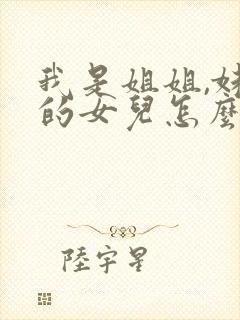 我是姐姐,
的女兒怎麼
陸宇星